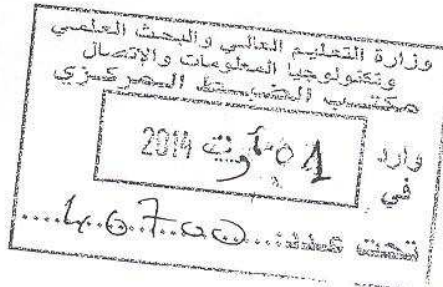 وزارة التعليم العالي والبحث العلمي
وتكنولوجيا المعلومات والإتصال
مكتب الضبط المركزي
وارد
في
01 أوت 2014
تحت عدد:....4.6.7.00....